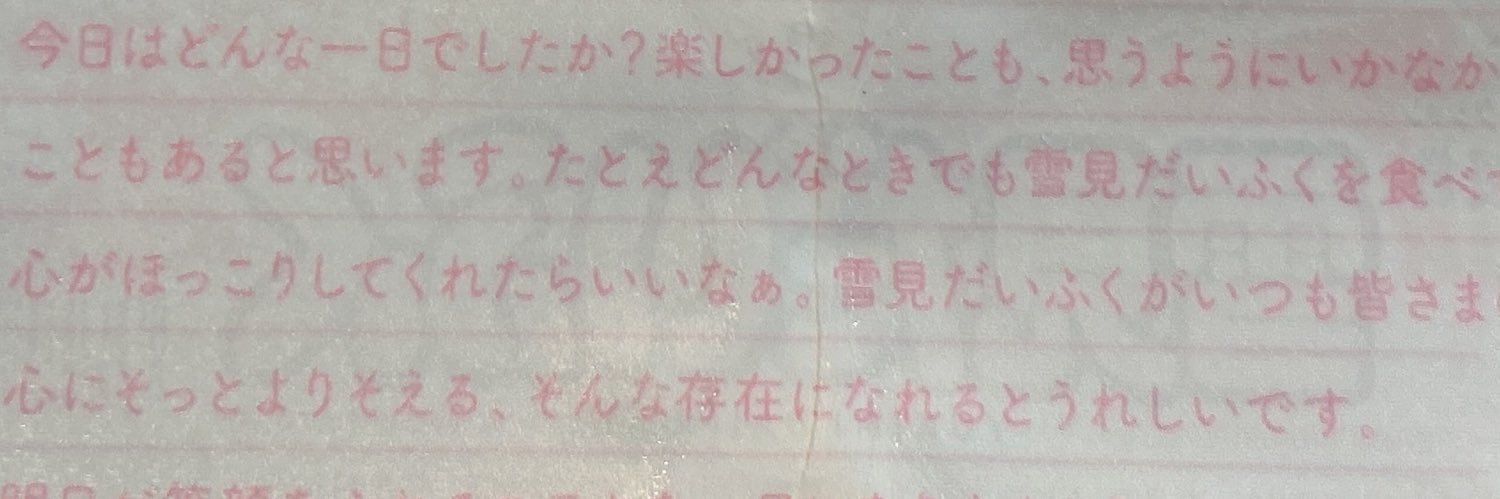 今日はどんな一日でしたか?楽しかったことも、思うようにいかなか
こともあると思います。たとえどんなときでも雪見だいふくを食べて
心がほっこりしてくれたらいいなぁ。雪見だいふくがいつも皆さま
心にそっとよりそえる、そんな存在になれるとうれしいです。